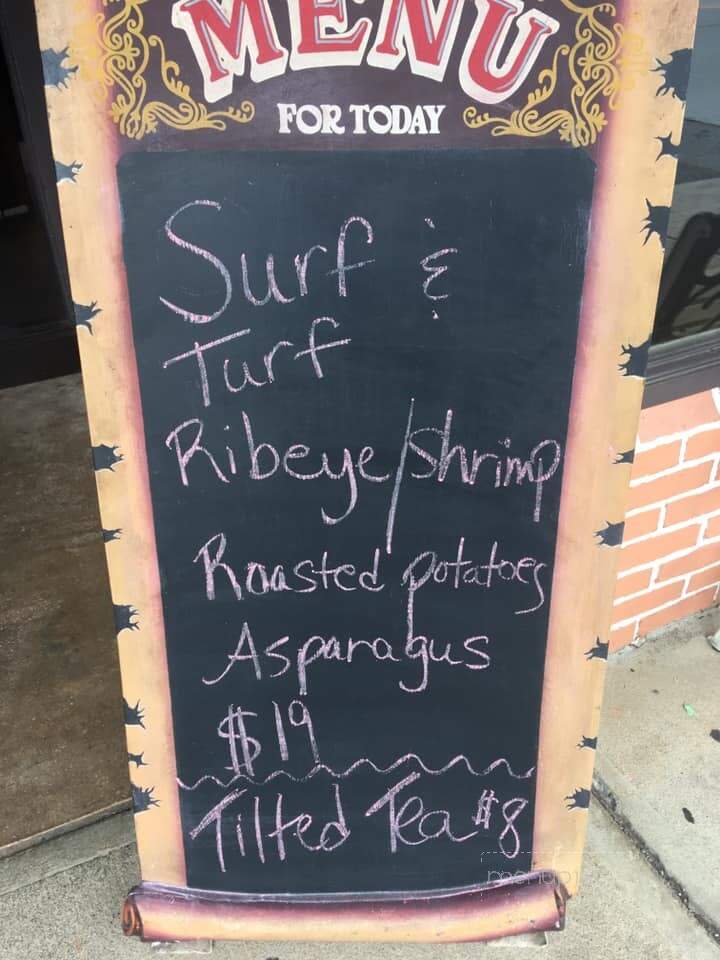 MENU
FOR TODAY
Surf &
Turf
Ribeye/Shrimp
Roasted potatoes
Asparagus
$19
Tilted Tea $8
menupix